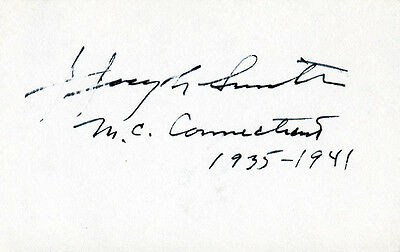 J. Joseph Smith
M.C. Connecticut
1935-1941